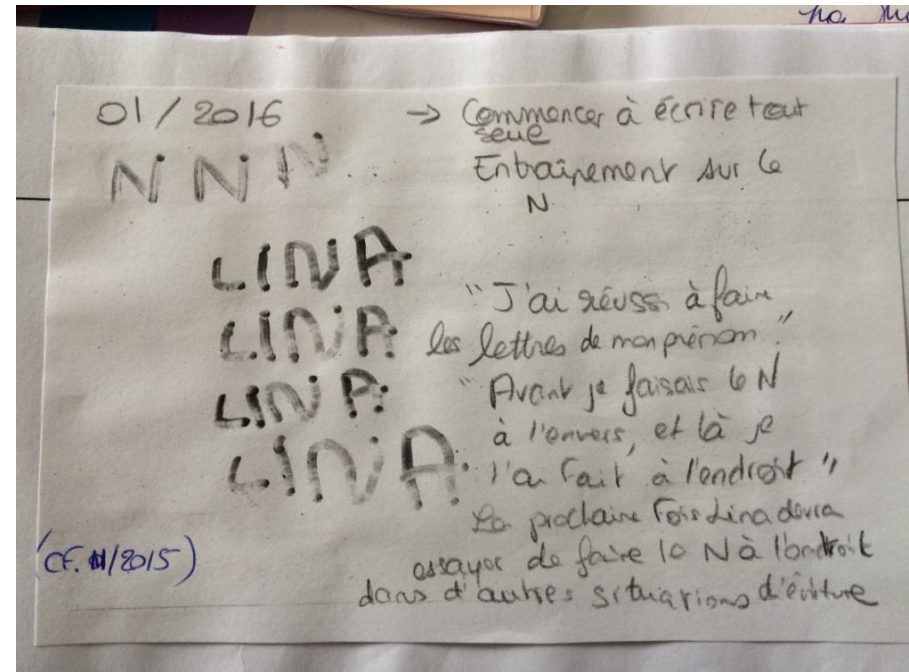 no
01/2016 → Commencer à écrire tout
seule
N N N Entraînement sur le
N
LINA
"J'ai réussi à faire
LINA les lettres de mon prénom."
LINA "Avant je faisais le N
à l'envers, et là je
LINA l'ai fait à l'endroit"
La prochaine fois Lina devra
(CF. 11/2015) essayer de faire le N à l'endroit
dans d'autres situations d'écriture